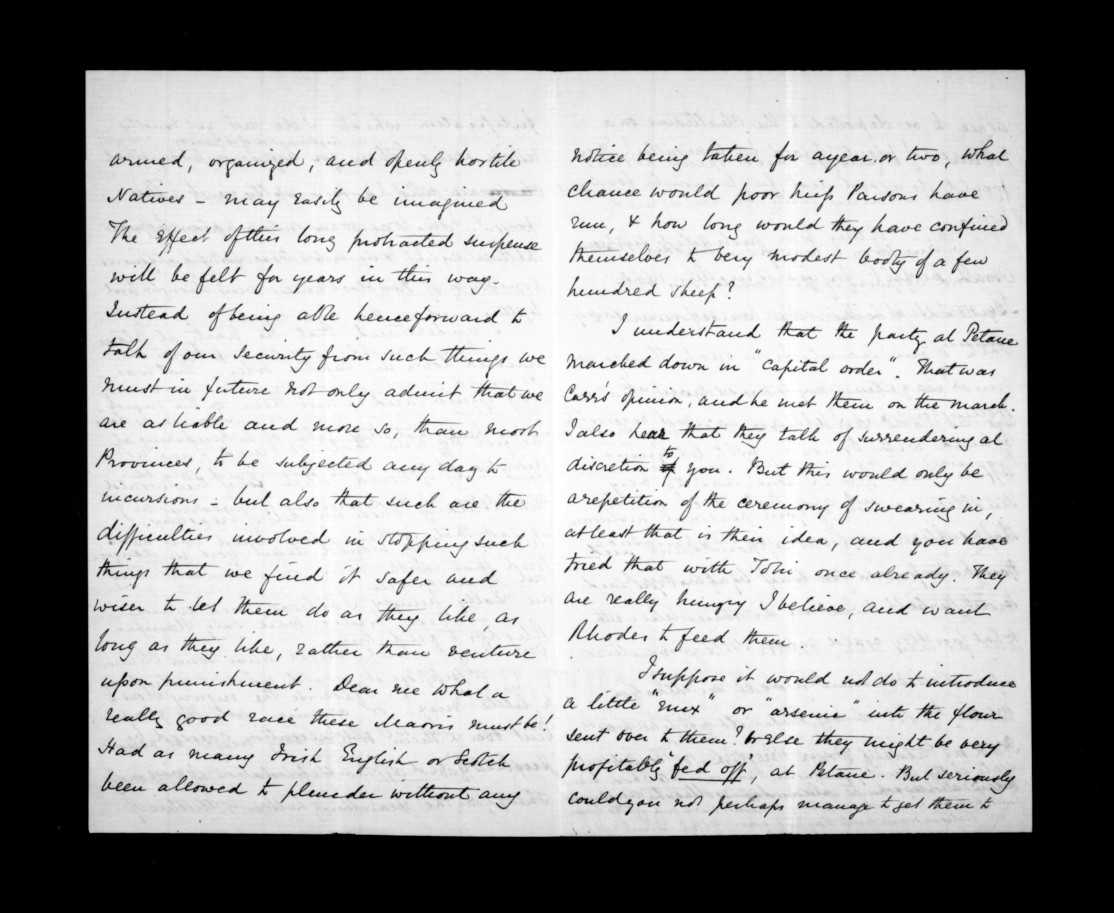 armed, organized, and openly hostile
Natives - may easily be imagined
The effect of this long protracted suspense
will be felt for years in this way -
Instead of being able henceforward to
talk of our security from such things we
must in future not only admit that we
are as liable and more so, than most
Provinces, to be subjected any day to
incursions - but also that such are the
difficulties involved in stopping such
things that we find it safer and
wiser to let them do as they like as
long as they like, rather than venture
upon punishment. Dear me what a
really good race these Maoris must be!
Had as many Irish English or Scotch
been allowed to plunder without any
notice being taken for a year or two, what
chance would poor Miss Parsons have
run, & how long would they have confined
themselves to very modest booty of a few
hundred sheep?
I understand that the party at Petane
marched down in "capital order". That was
Carr's opinion, and he met them on the march.
I also hear that they talk of surrendering at
discretion to you. But this would only be
a repetition of the ceremony of swearing in,
at least that is their idea, and you have
tried that with Tohi once already. They
are really hungry I believe, and want
Rhodes to feed them.
I suppose it would not do to introduce
a little "nux" or "arsenic" into the flour
sent over to them? Or else they might be very
profitably "fed off", at Petane. But seriously
could you not perhaps manage to get them to